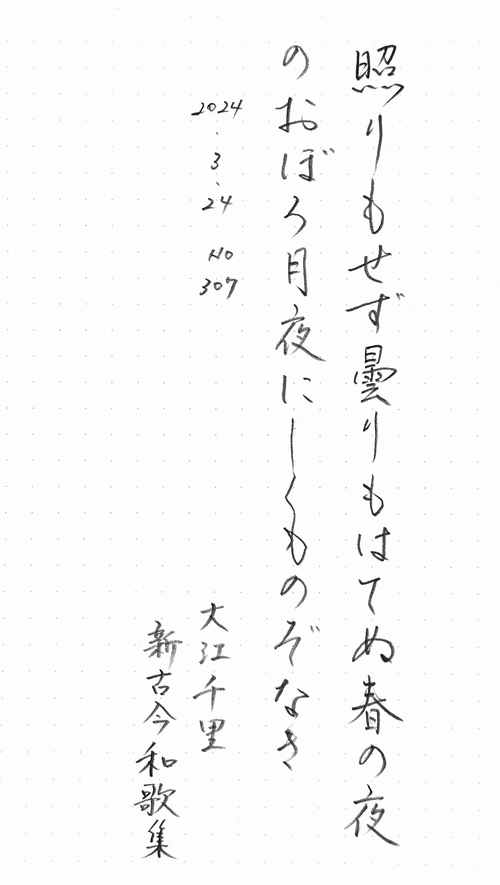 照りもせず曇りもはてぬ春の夜
のおぼろ月夜にしくものぞなき
2024.3.24 No 307
大江千里
新古今和歌集